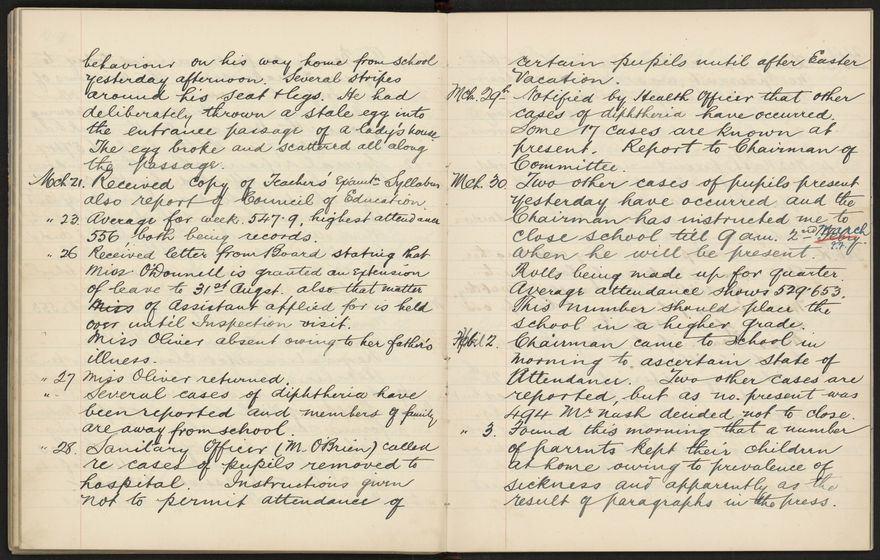 behaviour on his way home from school
yesterday afternoon. Several stripes
around his seat & legs. He had
deliberately thrown a stale egg into
the entrance passage of a lady's house
The egg broke and scattered all along
the passage.
Mch 21. Received copy of Teachers' Syllabus
also report of Council of Education.
" 23. Average for week. 547.9, highest attendance
556 both being records.
" 26 Received letter from Board stating that
Miss O'Donnell is granted an extension
of leave to 31st Augst. also that matter
Miss of Assistant applied for is held
over until Inspection visit.
Miss Oliver absent owing to her father's
illness.
" 27 Miss Oliver returned.
" Several cases of diphtheria have
been reported and members of family
are away from school.
" 28. Sanitary Officer (M. O'Brien) called
re cases of pupils removed to
hospital. Instructions given
not to permit attendance of
certain pupils until after Easter
Vacation.
Mch. 29th Notified by Health Officer that other
cases of diphtheria have occurred.
Some 17 cases are known at
present. Report to Chairman of
Committee.
Mch. 30. Two other cases of pupils present
yesterday have occurred and the
Chairman has instructed me to
close school till 9 a.m. 2nd March
when he will be present.
Rolls being made up for quarter
Average attendance shows 529.653.
This number should place the
school in a higher grade.
April 2. Chairman came to school in
morning to ascertain state of
Attendance. Two other cases are
reported, but as no. present was
494 Mr Nash decided not to close.
" 3. Found this morning that a number
of parents kept their children
at home owing to prevalence of
sickness and apparently as the
result of paragraphs in the press.